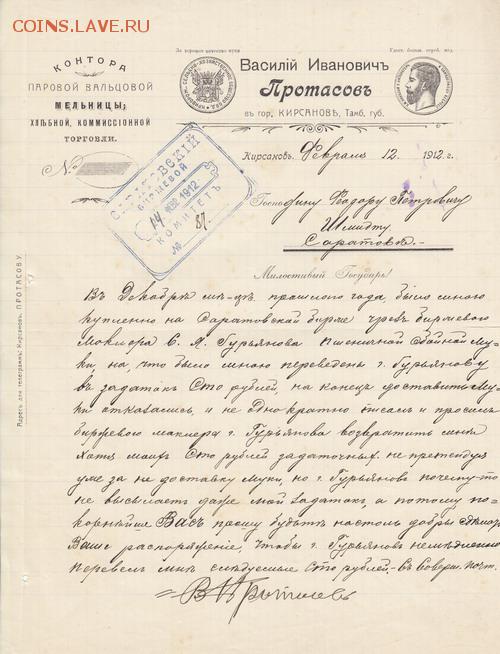 СОХРАНИ.LAVE.RU
КОНТОРА
ПАРОВОЙ ВАЛЬЦОВОЙ
МЕЛЬНИЦЫ,
ХЛѢБНОЙ, КОММИССІОННОЙ
ТОРГОВЛИ.
№
За хорошее качество муки
Удост. больш. сереб. мед.
Василій Ивановичъ
Протасовъ
въ гор. КИРСАНОВѢ, Тамб. губ.
Кирсановъ. Февраля 12 1912 г.
САРАТОВСКІЙ
БИРЖЕВОЙ
14 ФЕВ 1912
КОМИТЕТЪ
№ 81.
Господину Феодору Петровичу
Шмидту
Саратовъ.
Милостивый Государь!
Въ Декабрѣ м-цѣ прошлаго года было мною
куплено на Саратовской биржѣ чрезъ биржеваго
Маклера С. А. Гурьянова пшеничной Му-
ки, на что было мною переведено г. Гурьянову
въ задатокъ Сто рублей, на конецъ доставить Му-
ки отказались, и не однократно писалъ и просилъ
биржевого маклера г. Гурьянова возвратить мнѣ
Хотя Сто рублей задаточныхъ, не претендуя
уже за не доставку муки, но г. Гурьяновъ почему-то
не высылаетъ даже мой задатокъ, а потому по-
корнѣйше Васъ прошу будьте настоль добры сдѣлать
Ваше распоряженіе, чтобы г. Гурьяновъ немедленно
перевелъ мнѣ слѣдуемые Сто рублей. - Съ Соверш. почт.
В Протасовъ
Адресъ для телеграммъ: Кирсановъ. ПРОТАСОВУ.